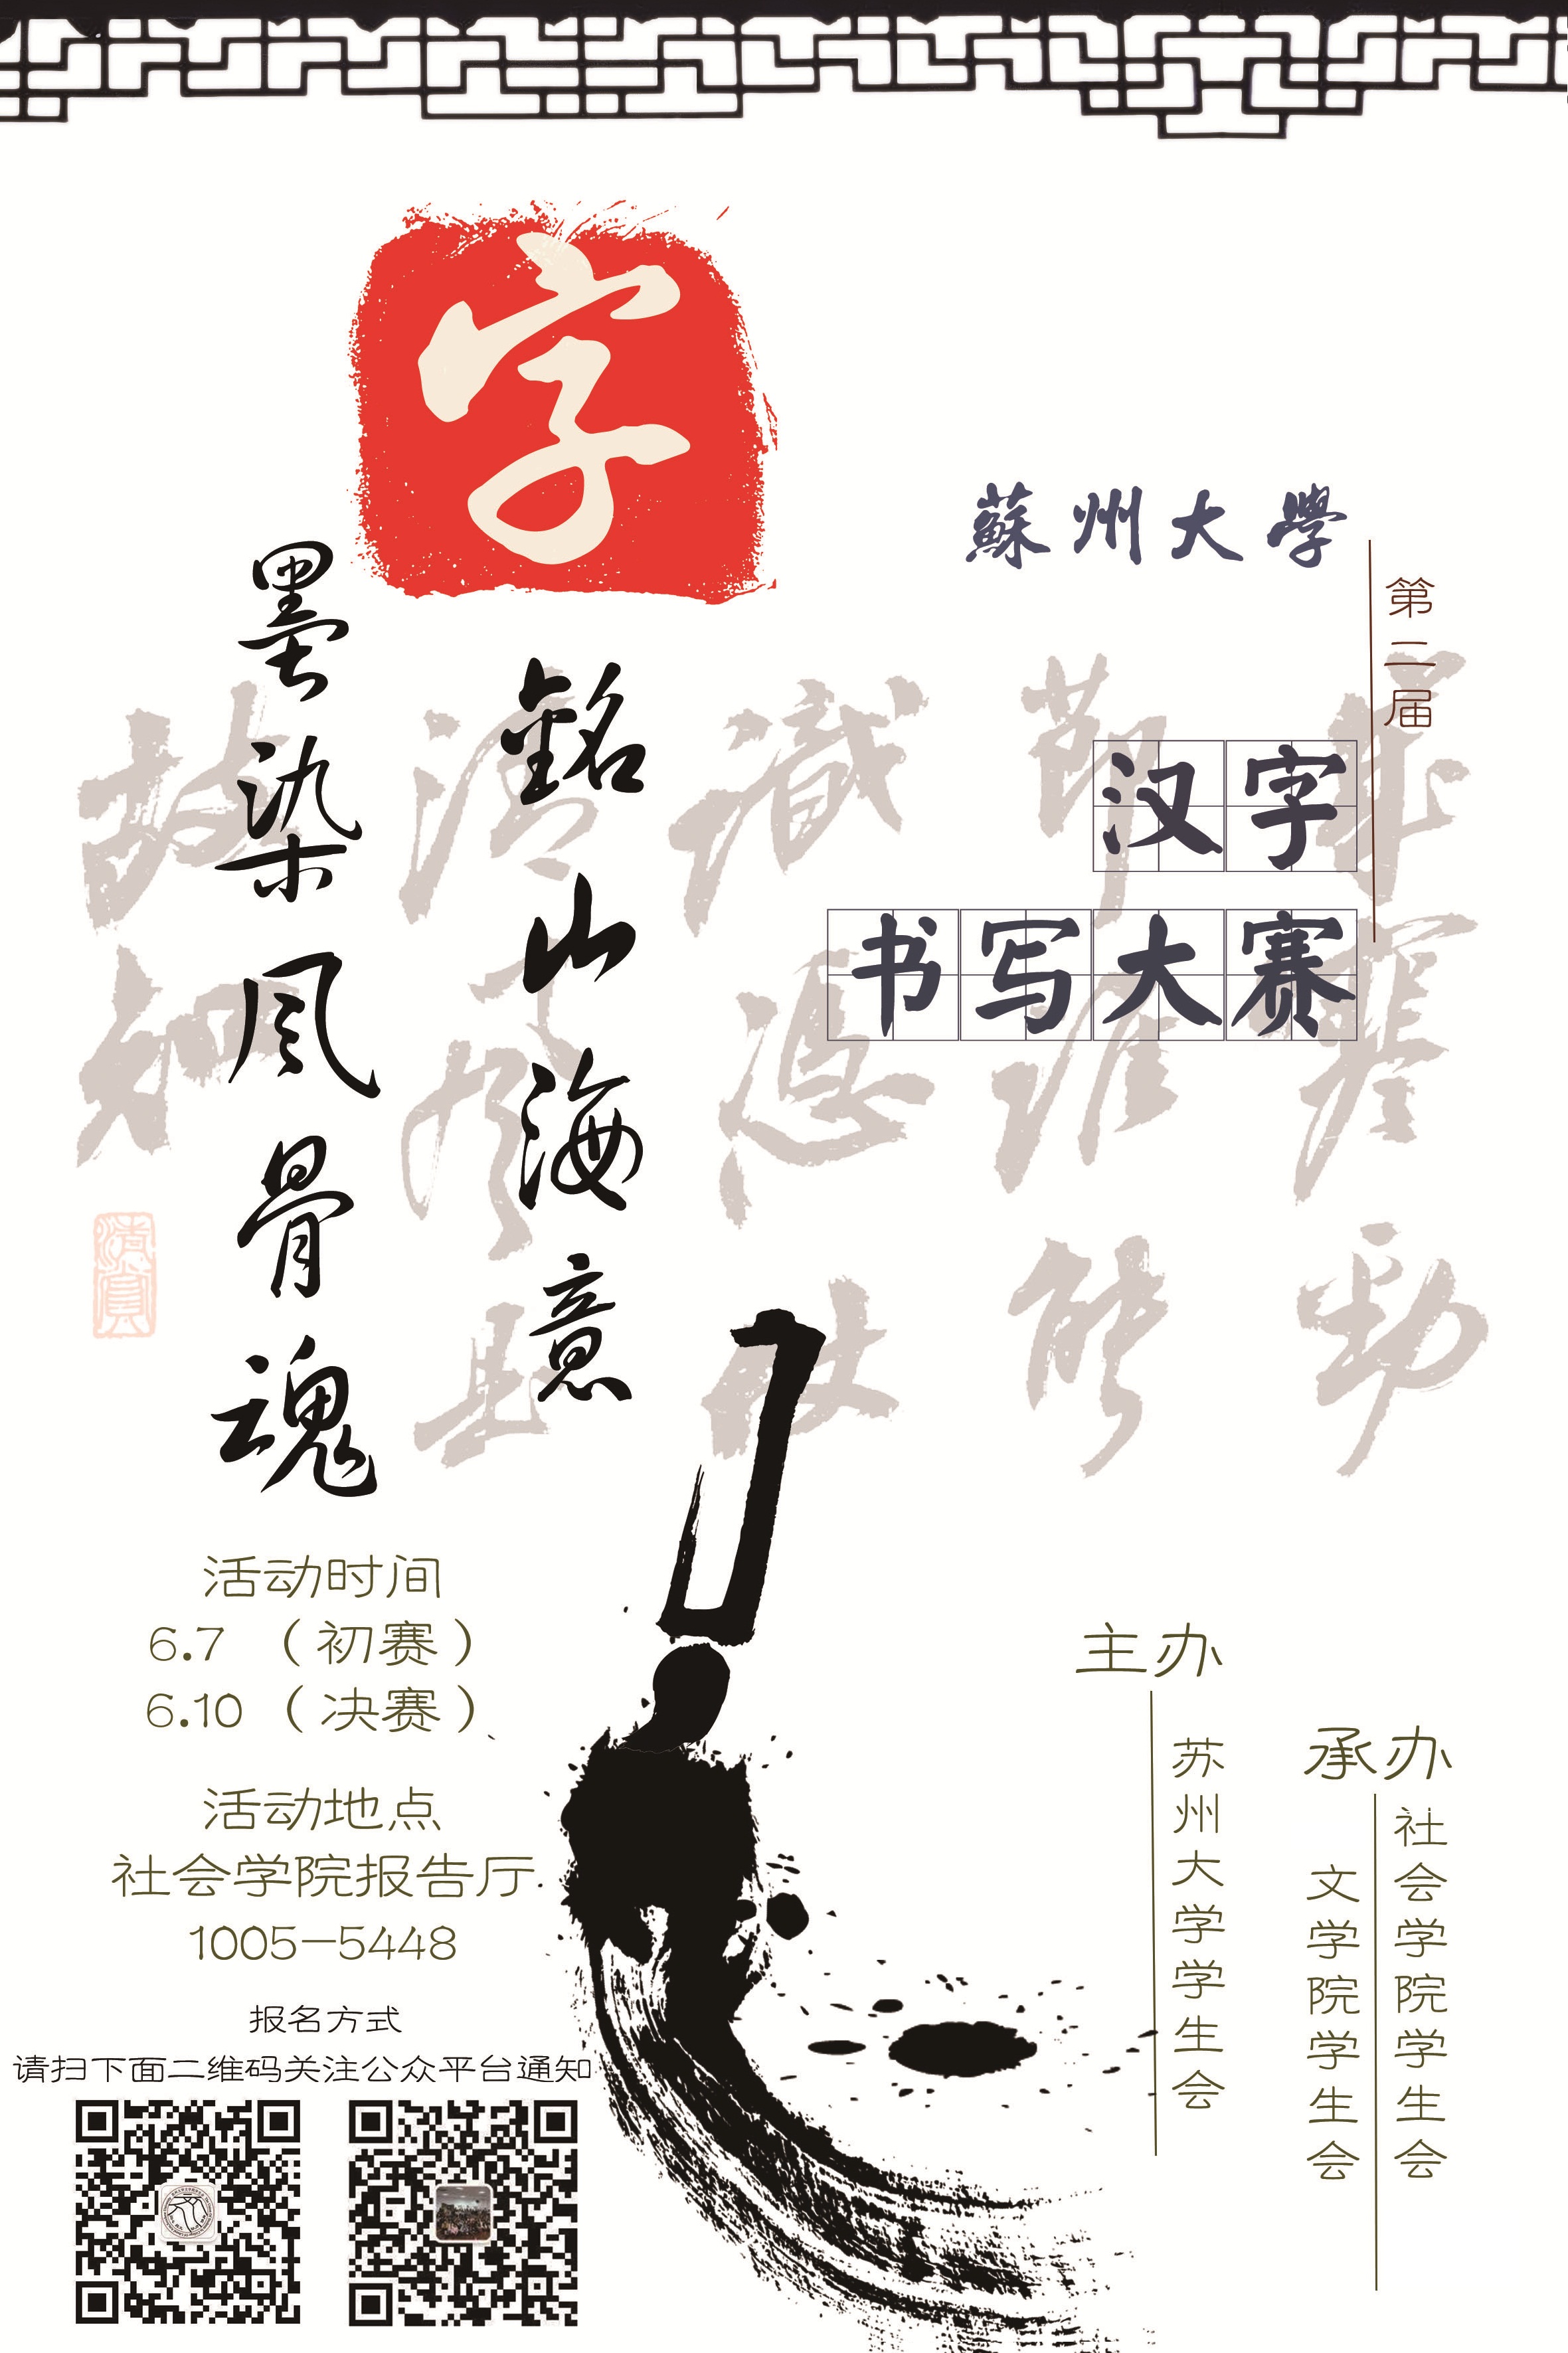 字
蘇州大學
第二届
汉字
书写大赛
銘山海意
墨染风骨魂
活动时间
6.7（初赛）
6.10（决赛）
活动地点
社会学院报告厅
1005-5448
报名方式
请扫下面二维码关注公众平台通知
主办
苏州大学学生会
承办
社会学院学生会
文学院学生会